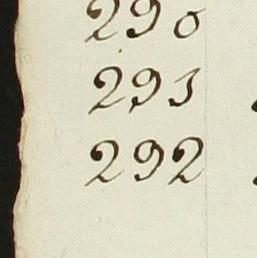 290
293
292